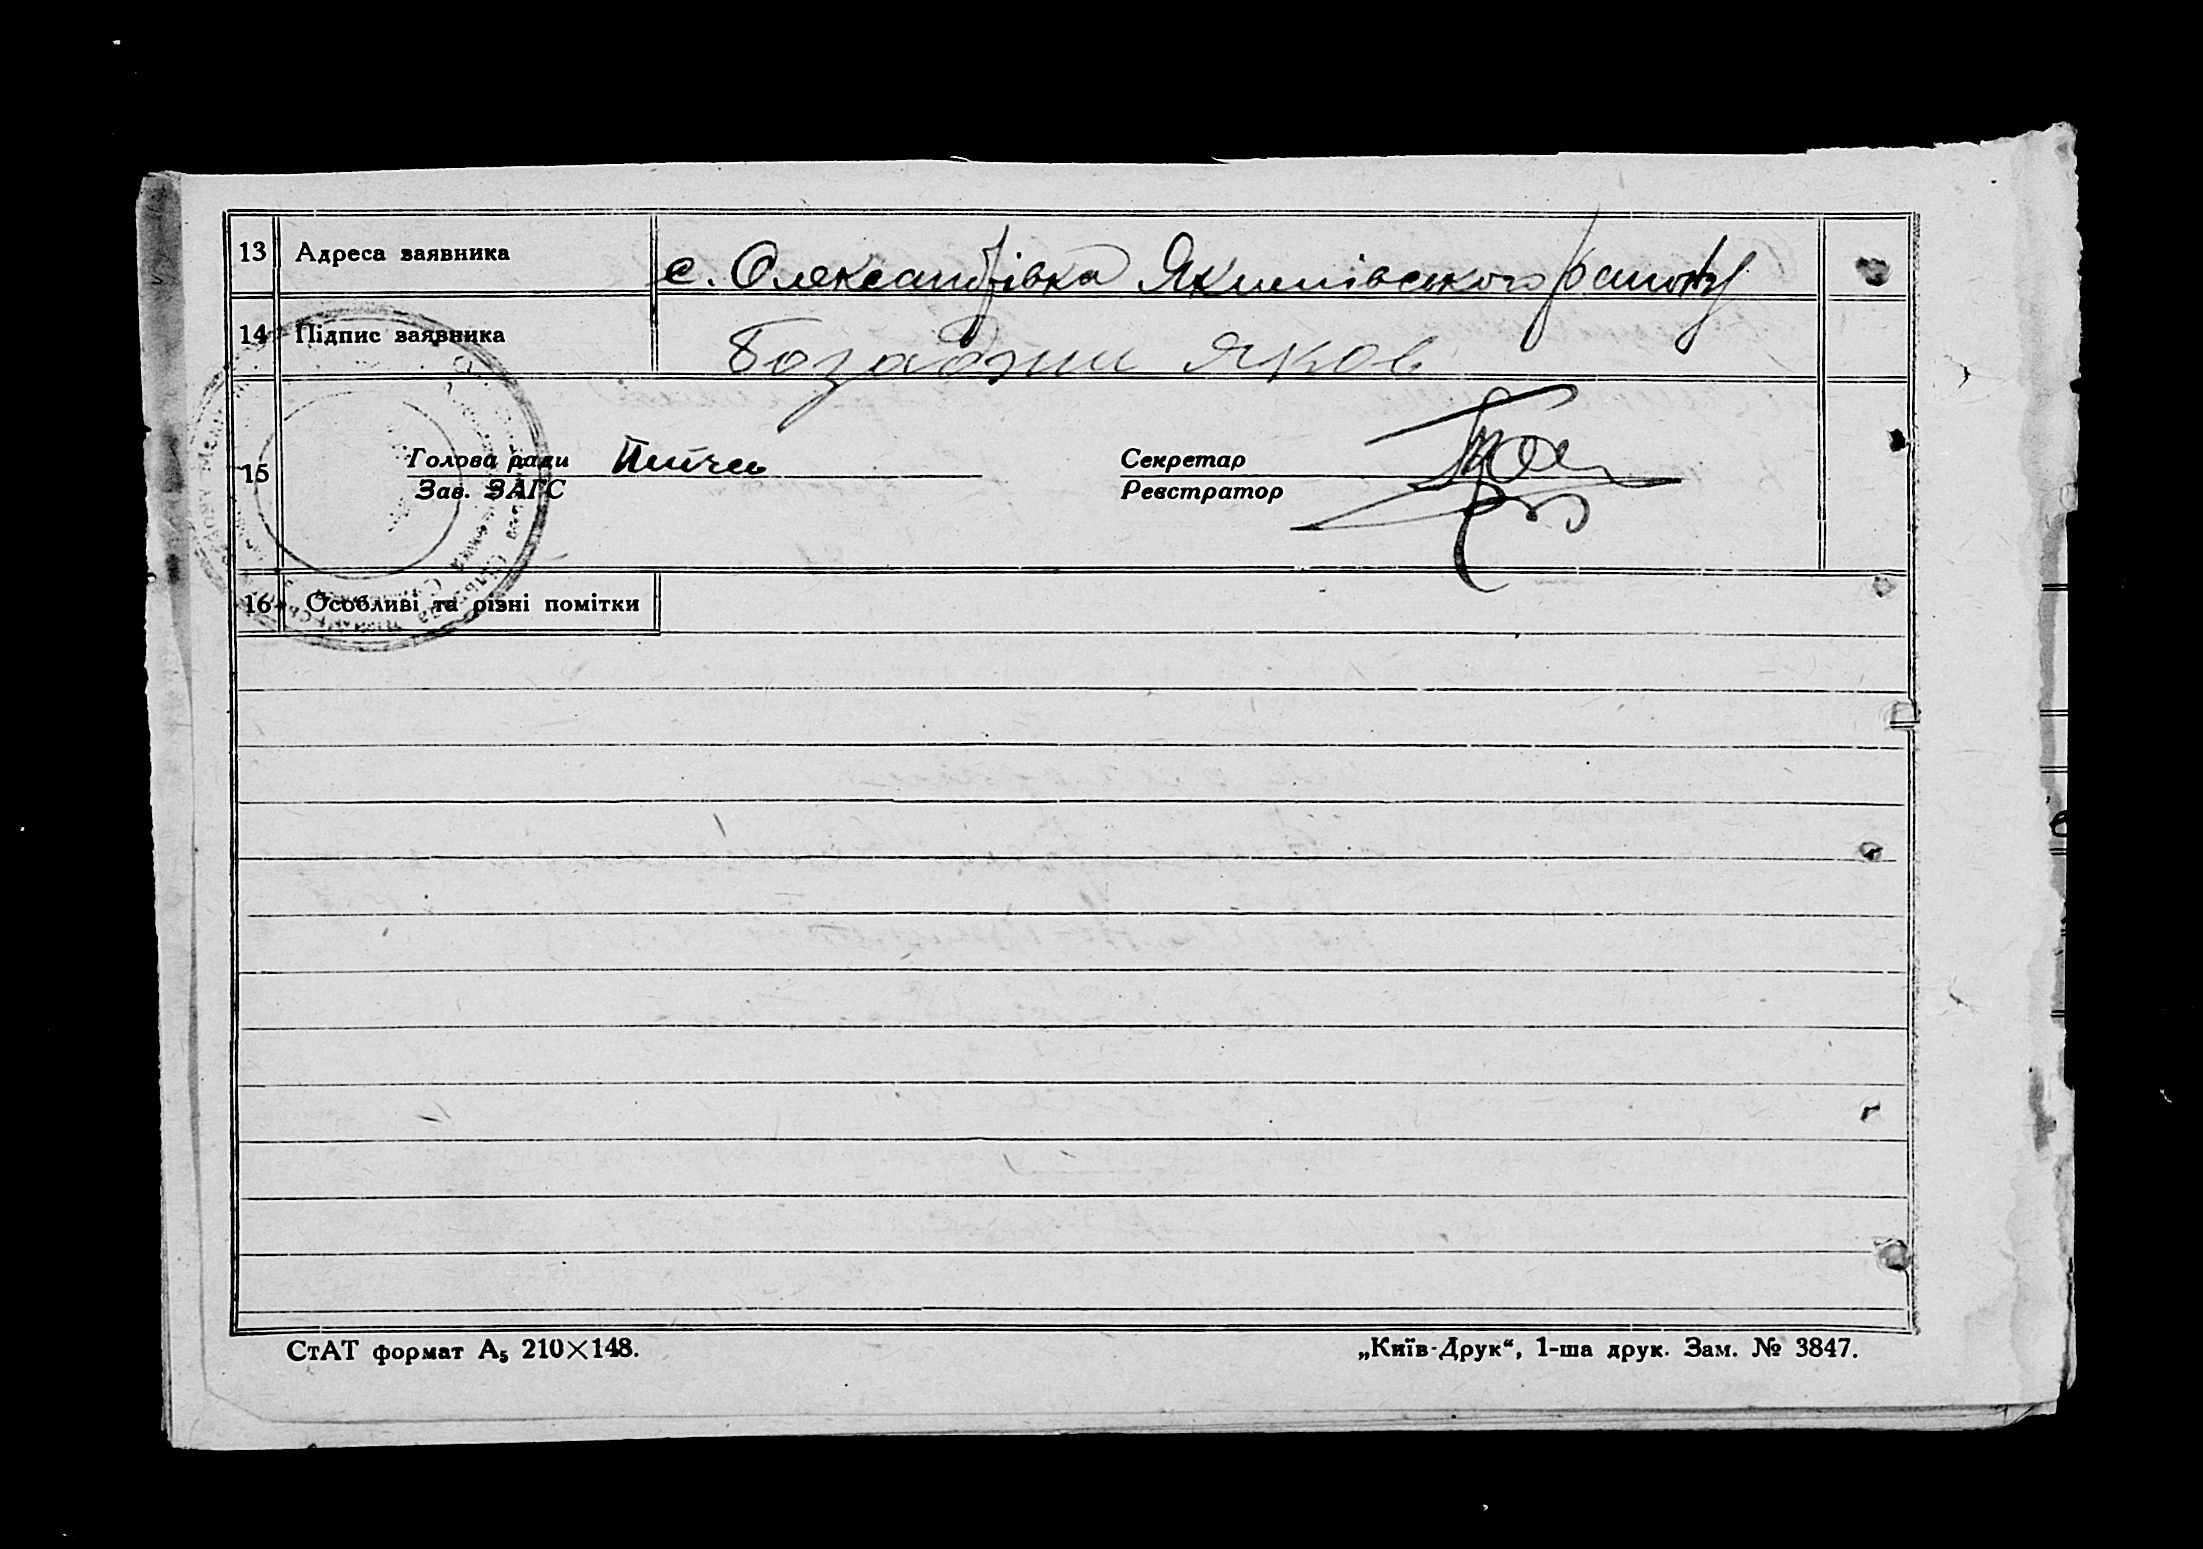 13 Адреса заявника с. Олександрівка Якимівського району
14 Підпис заявника Козаджи Яков
15 Голова ради
Зав. ЗАГС
Секретар
Реєстратор
16 Особливі та різні помітки
СтАТ формат А₅ 210×148.
„Київ-Друк“, 1-ша друк. Зам. № 3847.